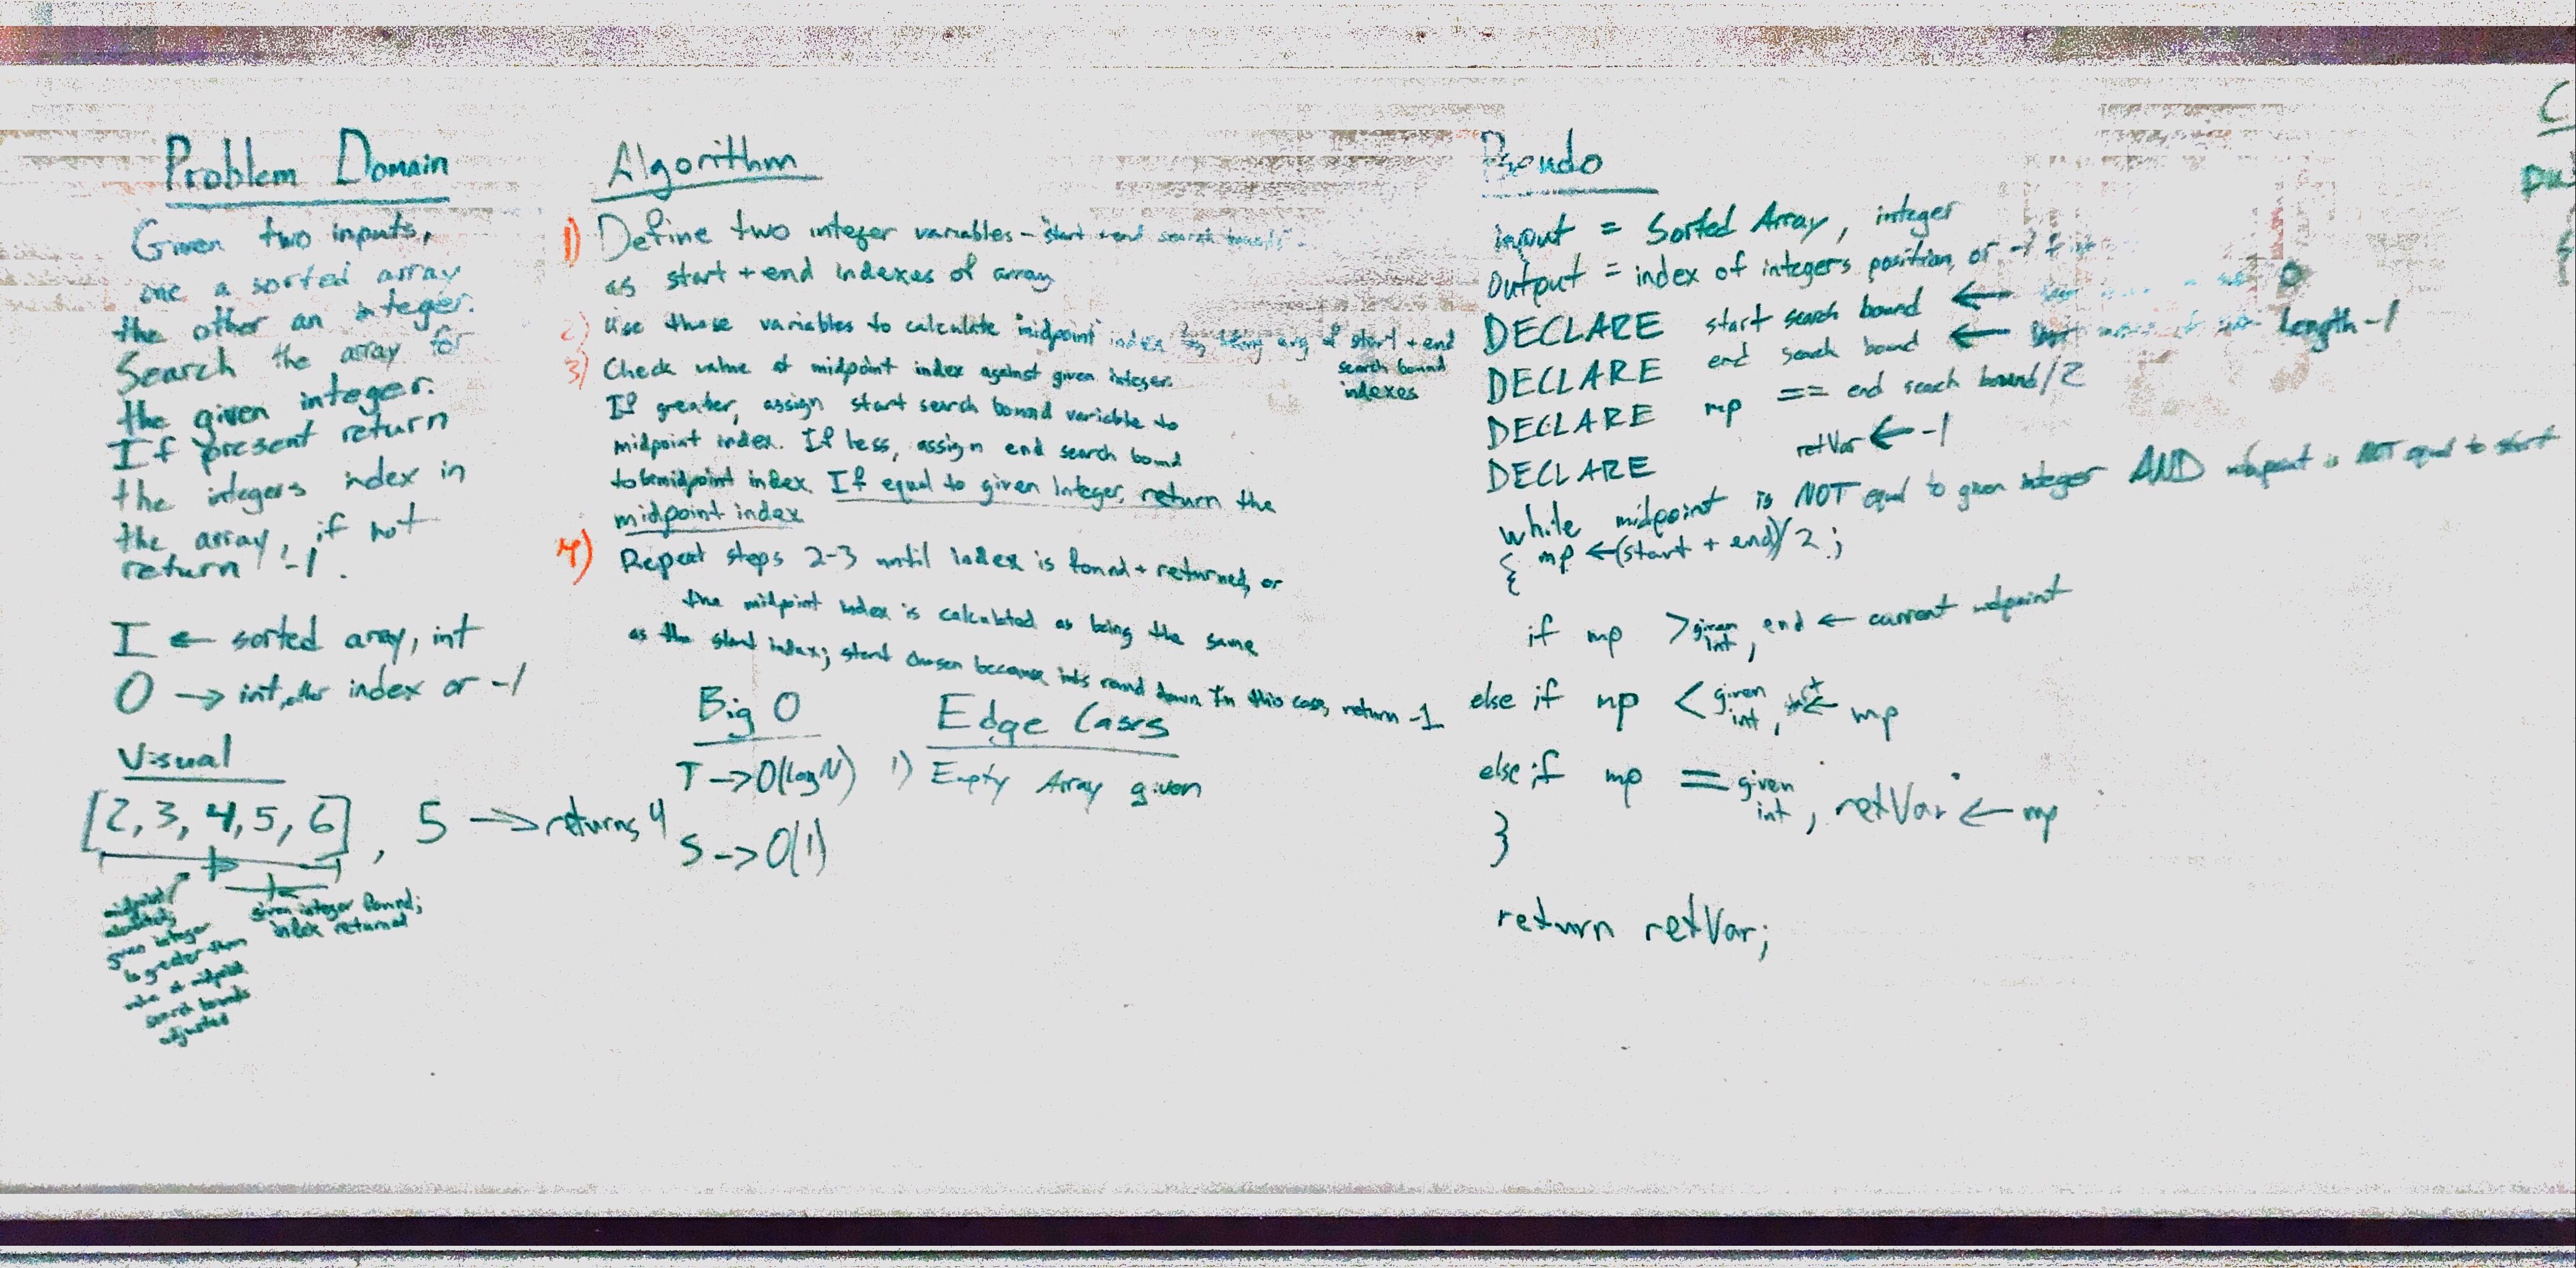 Problem Domain
Given two inputs,
one a sorted array
the other an integer.
Search the array for
the given integer.
If present return
the integers index in
the array, if not
return -1.
I ← sorted array, int
O → int, index or -1
Visual
[2, 3, 4, 5, 6], 5 → returns 4
midpoint
given integer
is greater than
value at midpoint
search bounds
adjusted
given integer found;
index returned
Algorithm
1) Define two integer variables - "start + end search bounds" -
as start + end indexes of array
2) Use those variables to calculate "midpoint" index by taking avg of start + end
search bound
indexes
3) Check value at midpoint index against given integer.
If greater, assign start search bound variable to
midpoint index. If less, assign end search bound
to midpoint index. If equal to given Integer, return the
midpoint index
4) Repeat steps 2-3 until index is found + returned, or
the midpoint index is calculated as being the same
as the start index; start chosen because ints round down In this case, return -1
Big O
T → O(Log N)
S → O(1)
Edge Cases
1) Empty Array given
Pseudo
input = Sorted Array, integer
Output = index of integers position, or -1
DECLARE start search bound ← 0
DECLARE end search bound ← Length-1
DECLARE mp == end search bound/2
DECLARE retVar ← -1
while midpoint is NOT equal to given integer AND midpoint is NOT equal to start
{ mp ← (start + end)/2;
if mp > given int, end ← current midpoint
else if mp < given int, ← mp
else if mp = given int, retVar ← mp
}
return retVar;
C
pu